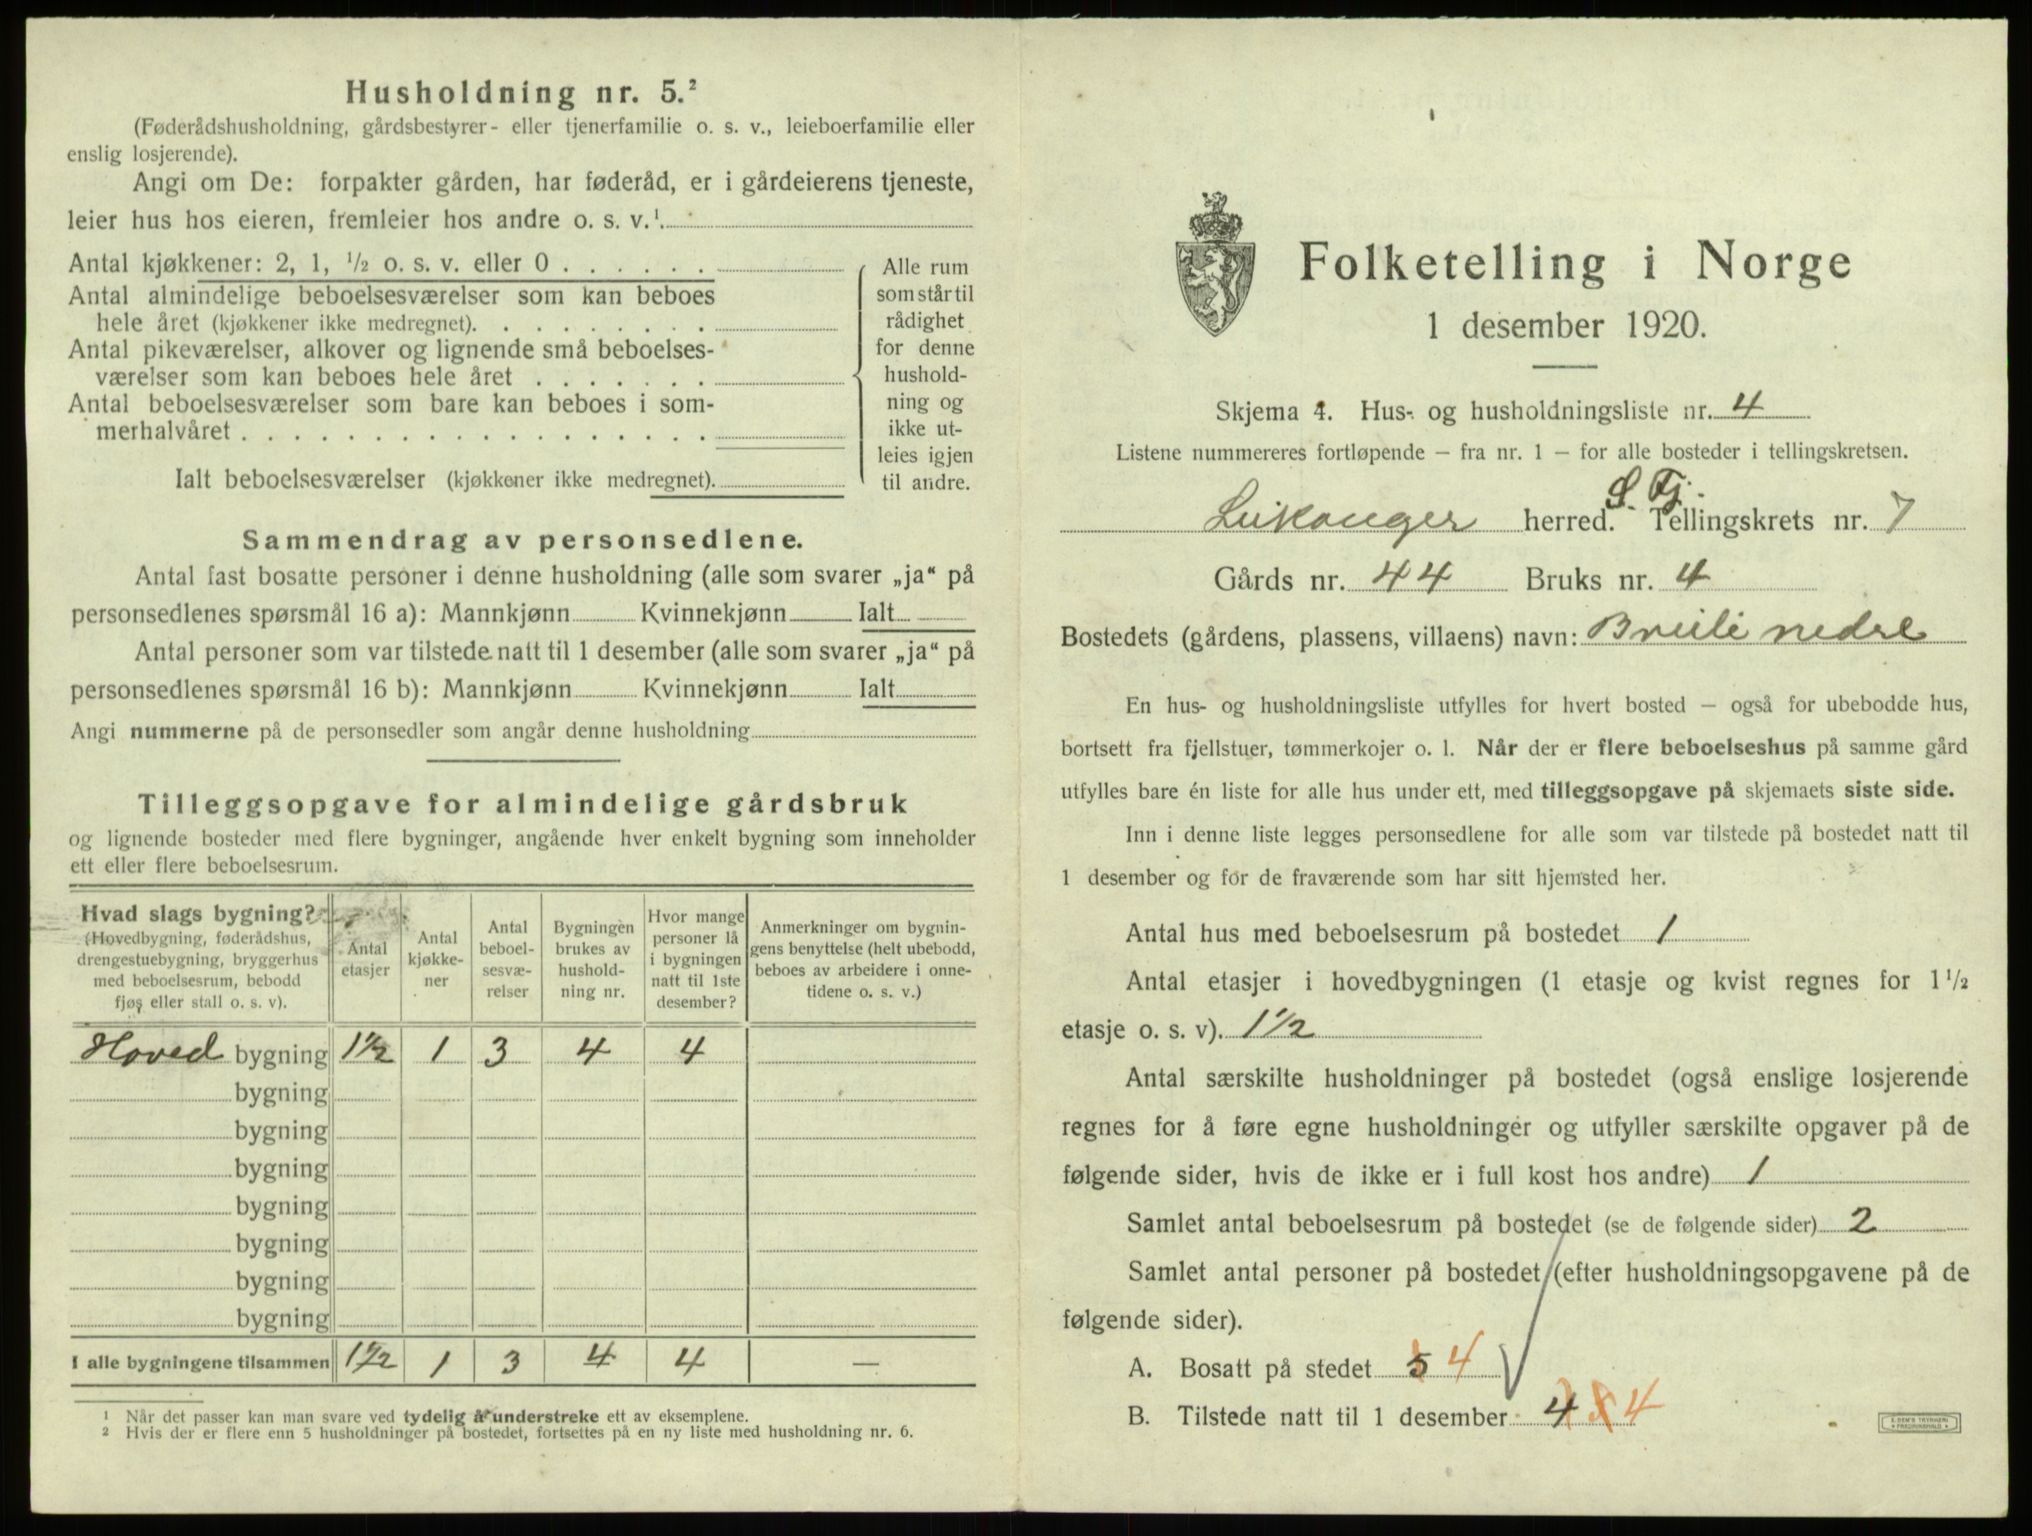 Husholdning nr. 5.²
(Føderådshusholdning, gårdsbestyrer- eller tjenerfamilie o. s. v., leieboerfamilie eller
enslig losjerende).
Angi om De: forpakter gården, har føderåd, er i gårdeierens tjeneste,
leier hus hos eieren, fremleier hos andre o. s. v.¹.
Antal kjøkkener: 2, 1, ½ o. s. v. eller 0 . . . . . .
Antal almindelige beboelsesværelser som kan beboes
hele året (kjøkkener ikke medregnet). . . . . . . . .
Antal pikeværelser, alkover og lignende små beboelses-
værelser som kan beboes hele året . . . . . . .
Antal beboelsesværelser som bare kan beboes i som-
merhalvåret . . . . . . . . . . . . . . . . . .
Ialt beboelsesværelser (kjøkkener ikke medregnet).
Alle rum
som står til
rådighet
for denne
hushold-
ning og
ikke ut-
leies igjen
til andre.
Sammendrag av personsedlene.
Antal fast bosatte personer i denne husholdning (alle som svarer „ja“ på
personsedlenes spørsmål 16 a): Mannkjønn Kvinnekjønn Ialt
Antal personer som var tilstede natt til 1 desember (alle som svarer „ja“ på
personsedlenes spørsmål 16 b): Mannkjønn Kvinnekjønn Ialt
Angi nummerne på de personsedler som angår denne husholdning
Tilleggsopgave for almindelige gårdsbruk
og lignende bosteder med flere bygninger, angående hver enkelt bygning som inneholder
ett eller flere beboelsesrum.
Hvad slags bygning?
(Hovedbygning, føderådshus,
drengestuebygning, bryggerhus
med beboelsesrum, bebodd
fjøs eller stall o. s. v).
Antal
etasjer
Antal
kjøkke-
ner
Antal
beboel-
sesvæ-
relser
Bygningen
brukes av
hushold-
ning nr.
Hvor mange
personer lå
i bygningen
natt til 1ste
desember?
Anmerkninger om bygnin-
gens benyttelse (helt ubebodd,
beboes av arbeidere i onne-
tidene o. s. v.)
Hoved bygning 1½ 1 3 4 4
bygning
bygning
bygning
bygning
bygning
bygning
bygning
I alle bygningene tilsammen 1½ 1 3 4 4 —
¹ Når det passer kan man svare ved tydelig å understreke ett av eksemplene.
² Hvis der er flere enn 5 husholdninger på bostedet, fortsettes på en ny liste med husholdning nr. 6.
Folketelling i Norge
1 desember 1920.
Skjema 4. Hus- og husholdningsliste nr. 4
Listene nummereres fortløpende – fra nr. 1 – for alle bosteder i tellingskretsen.
S. Fj.
Leikanger herred. Tellingskrets nr. 7
Gårds nr. 44 Bruks nr. 4
Bostedets (gårdens, plassens, villaens) navn: Breili nedre
En hus- og husholdningsliste utfylles for hvert bosted – også for ubebodde hus,
bortsett fra fjellstuer, tømmerkojer o. l. Når der er flere beboelseshus på samme gård
utfylles bare én liste for alle hus under ett, med tilleggsopgave på skjemaets siste side.
Inn i denne liste legges personsedlene for alle som var tilstede på bostedet natt til
1 desember og for de fraværende som har sitt hjemsted her.
Antal hus med beboelsesrum på bostedet 1
Antal etasjer i hovedbygningen (1 etasje og kvist regnes for 1½
etasje o. s. v). 1½
Antal særskilte husholdninger på bostedet (også enslige losjerende
regnes for å føre egne husholdninger og utfyller særskilte opgaver på de
følgende sider, hvis de ikke er i full kost hos andre) 1
Samlet antal beboelsesrum på bostedet (se de følgende sider) 2
Samlet antal personer på bostedet (efter husholdningsopgavene på de
følgende sider).
A. Bosatt på stedet 5 4
B. Tilstede natt til 1 desember 4 4